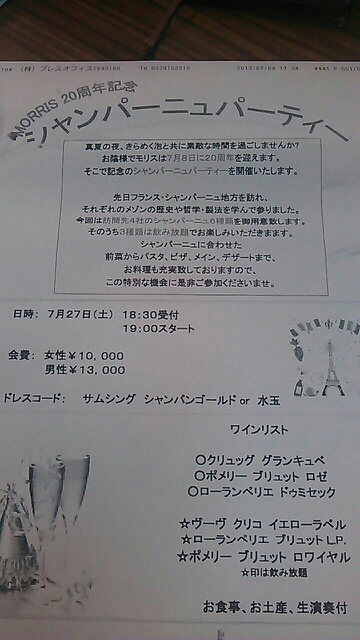 (株) プレスオフィス
2013/07/09 17:34
MORRIS 20周年記念
シャンパーニュパーティー
真夏の夜、きらめく泡と共に素敵な時間を過ごしませんか?
お陰様でモリスは7月8日に20周年を迎えます。
そこで記念のシャンパーニュパーティーを開催いたします。
先日フランス・シャンパーニュ地方を訪れ、
それぞれのメゾンの歴史や哲学・製法を学んで参りました。
今回は訪問先4社のシャンパーニュ6種類を御用意致します。
そのうち3種類は飲み放題でお楽しみいただきます。
シャンパーニュに合わせた
前菜からパスタ、ピザ、メイン、デザートまで、
お料理も充実致しておりますので、
この特別な機会に是非ご参加くださいませ。
日時: 7月27日(土) 18:30受付
19:00スタート
会費: 女性¥10,000
男性¥13,000
ドレスコード: サムシング シャンパンゴールド or 水玉
ワインリスト
〇クリュッグ グランキュベ
〇ポメリー ブリュット ロゼ
〇ローランペリエ ドゥミセック
☆ヴーヴ クリコ イエローラベル
☆ローランペリエ ブリュット L.P.
☆ポメリー ブリュット ロワイヤル
☆印は飲み放題
お食事、お土産、生演奏付